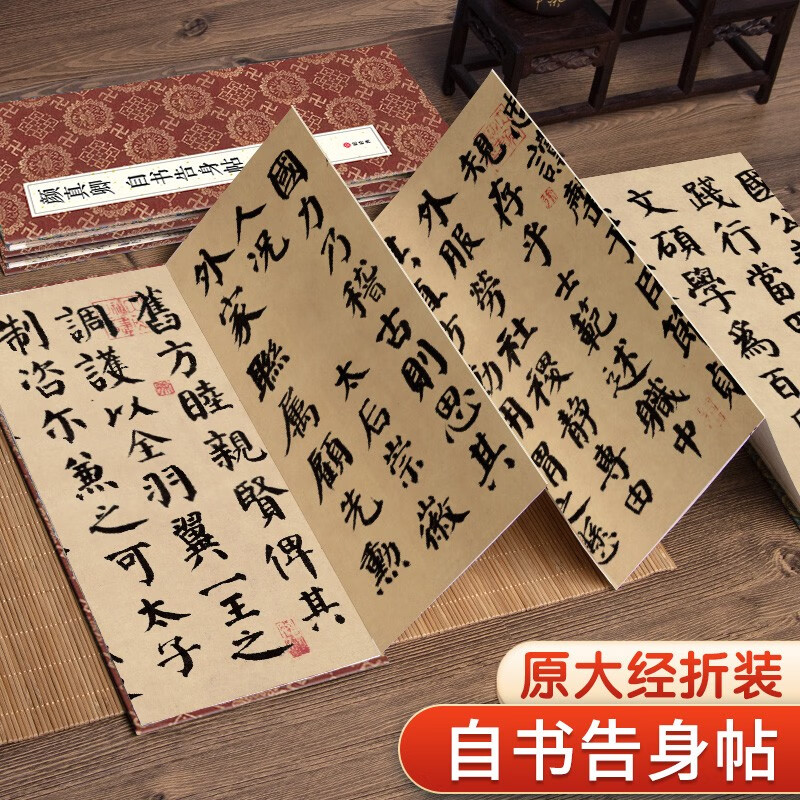 颜真卿 自书告身帖
國
踐行當
文碩學爲百
忠讜罄于臣節貞
規存乎士範述職中
外服勞社稷靜專由
其直方動用謂之懸
國力乃稽古則思其
人況太后崇徽
外家聯屬顧先勳
舊方睦親賢俾其
調護以全羽翼一王之
制咨尔兼之可太子
原大经折装
自书告身帖